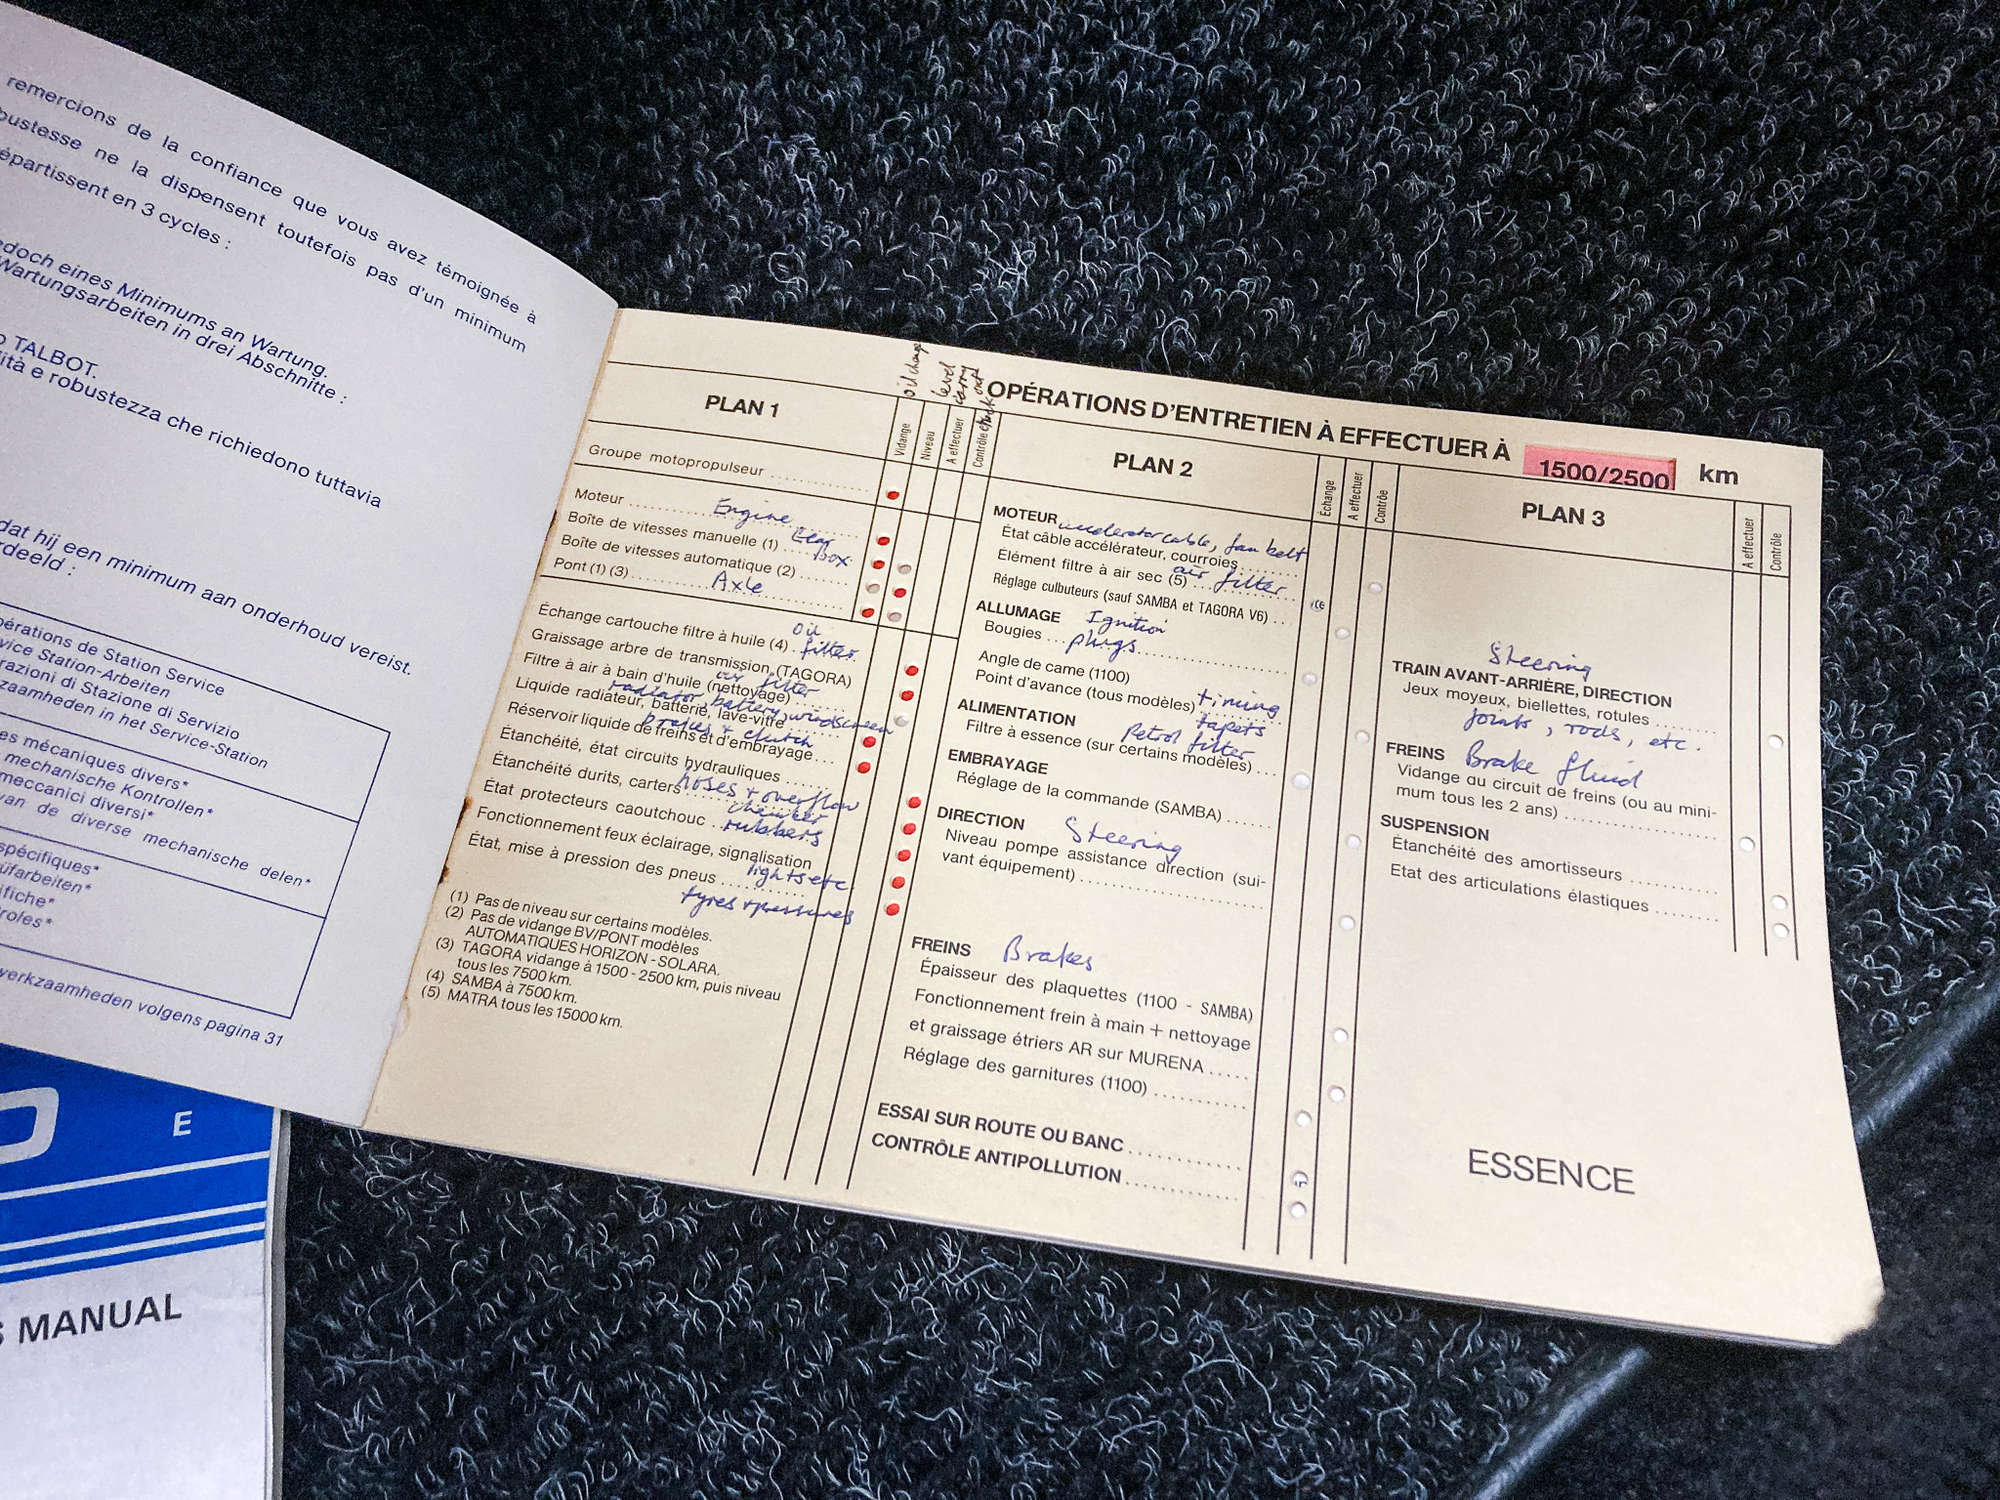 remercions de la confiance que vous avez témoignée à
bustesse ne la dispensent toutefois pas d'un minimum
épartissent en 3 cycles :
edoch eines Minimums an Wartung.
Wartungsarbeiten in drei Abschnitte :
o TALBOT.
lità e robustezza che richiedono tuttavia
dat hij een minimum aan onderhoud vereist.
rdeeld :
érations de Station Service
vice Station-Arbeiten
razioni di Stazione di Servizio
zaamheden in het Service-Station
es mécaniques divers*
mechanische Kontrollen*
meccanici diversi*
van de diverse mechanische delen*
spécifiques*
üfarbeiten*
ifiche*
roles*
verkzaamheden volgens pagina 31
E
S MANUAL
OPÉRATIONS D'ENTRETIEN À EFFECTUER À 1500/2500 km
oil change
level
carry out
check
PLAN 1
Vidange
Niveau
A effectuer
Contrôle
Groupe motopropulseur
Moteur Engine
Boîte de vitesses manuelle (1) Gear
Boîte de vitesses automatique (2) Box
Pont (1) (3) Axle
Échange cartouche filtre à huile (4) oil filter
Graissage arbre de transmission (TAGORA)
Filtre à air à bain d'huile (nettoyage) air filter
Liquide radiateur, batterie, lave-vitre radiator, battery, windscreen
Réservoir liquide de freins et d'embrayage brakes + clutch
Étanchéité, état circuits hydrauliques
Étanchéité durits, carters hoses + overflow
chamber
État protecteurs caoutchouc rubbers
Fonctionnement feux éclairage, signalisation
lights etc
État, mise à pression des pneus
tyres + pressures
(1) Pas de niveau sur certains modèles.
(2) Pas de vidange BV/PONT modèles
AUTOMATIQUES HORIZON - SOLARA.
(3) TAGORA vidange à 1500 - 2500 km, puis niveau
tous les 7500 km.
(4) SAMBA à 7500 km.
(5) MATRA tous les 15000 km.
PLAN 2
Échange
A effectuer
Contrôe
MOTEUR accelerator cable, fan belt
État câble accélérateur, courroies
Élément filtre à air sec (5) air filter
Réglage culbuteurs (sauf SAMBA et TAGORA V6)
ALLUMAGE Ignition
Bougies plugs
Angle de came (1100)
Point d'avance (tous modèles) timing
tapets
ALIMENTATION Petrol filter
Filtre à essence (sur certains modèles)
EMBRAYAGE
Réglage de la commande (SAMBA)
DIRECTION Steering
Niveau pompe assistance direction (sui-
vant équipement)
FREINS Brakes
Épaisseur des plaquettes (1100 - SAMBA)
Fonctionnement frein à main + nettoyage
et graissage étriers AR sur MURENA
Réglage des garnitures (1100)
ESSAI SUR ROUTE OU BANC
CONTRÔLE ANTIPOLLUTION
PLAN 3
A effectuer
Contrôle
Steering
TRAIN AVANT-ARRIÈRE, DIRECTION
Jeux moyeux, biellettes, rotules
joints, rods, etc.
FREINS Brake fluid
Vidange du circuit de freins (ou au mini-
mum tous les 2 ans)
SUSPENSION
Étanchéité des amortisseurs
Etat des articulations élastiques
ESSENCE